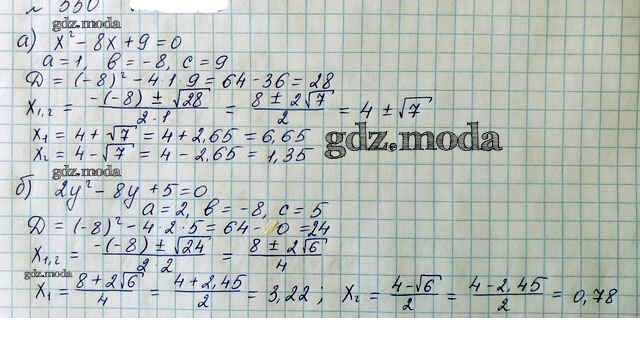 № 550
gdz.moda
а) x² - 8x + 9 = 0
a = 1, в = -8, c = 9
Д = (-8)² - 4·1·9 = 64 - 36 = 28
x₁,₂ = (-(-8) ± √28)/(2·1) = (8 ± 2√7)/2 = 4 ± √7
x₁ = 4 + √7 = 4 + 2,65 = 6,65
x₂ = 4 - √7 = 4 - 2,65 = 1,35
gdz.moda
gdz.moda
б) 2y² - 8y + 5 = 0
a = 2, в = -8, c = 5
Д = (-8)² - 4·2·5 = 64 - 0 = 24
x₁,₂ = (-(-8) ± √24)/(2·2) = (8 ± 2√6)/4
gdz.moda
x₁ = (8 + 2√6)/4 = (4 + 2,45)/2 = 3,22; x₂ = (4 - √6)/2 = (4 - 2,45)/2 = 0,78